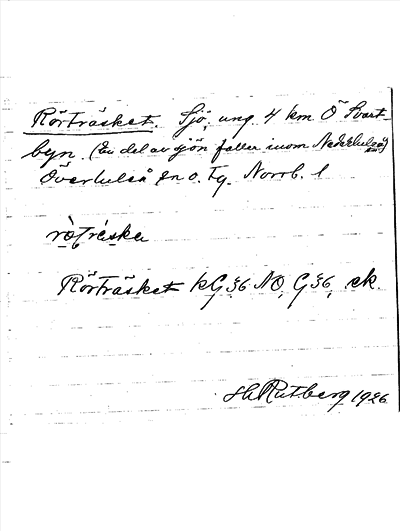 Rörträsket. Sjö, ung. 4 km Ö Svart-
byn. (En del av sjön faller inom Nederluleå sn)
Överluleå sn o. Tg. Norrb. l
Rörträsket kG 36 NO, G 36, ek.
H Rutberg 1926